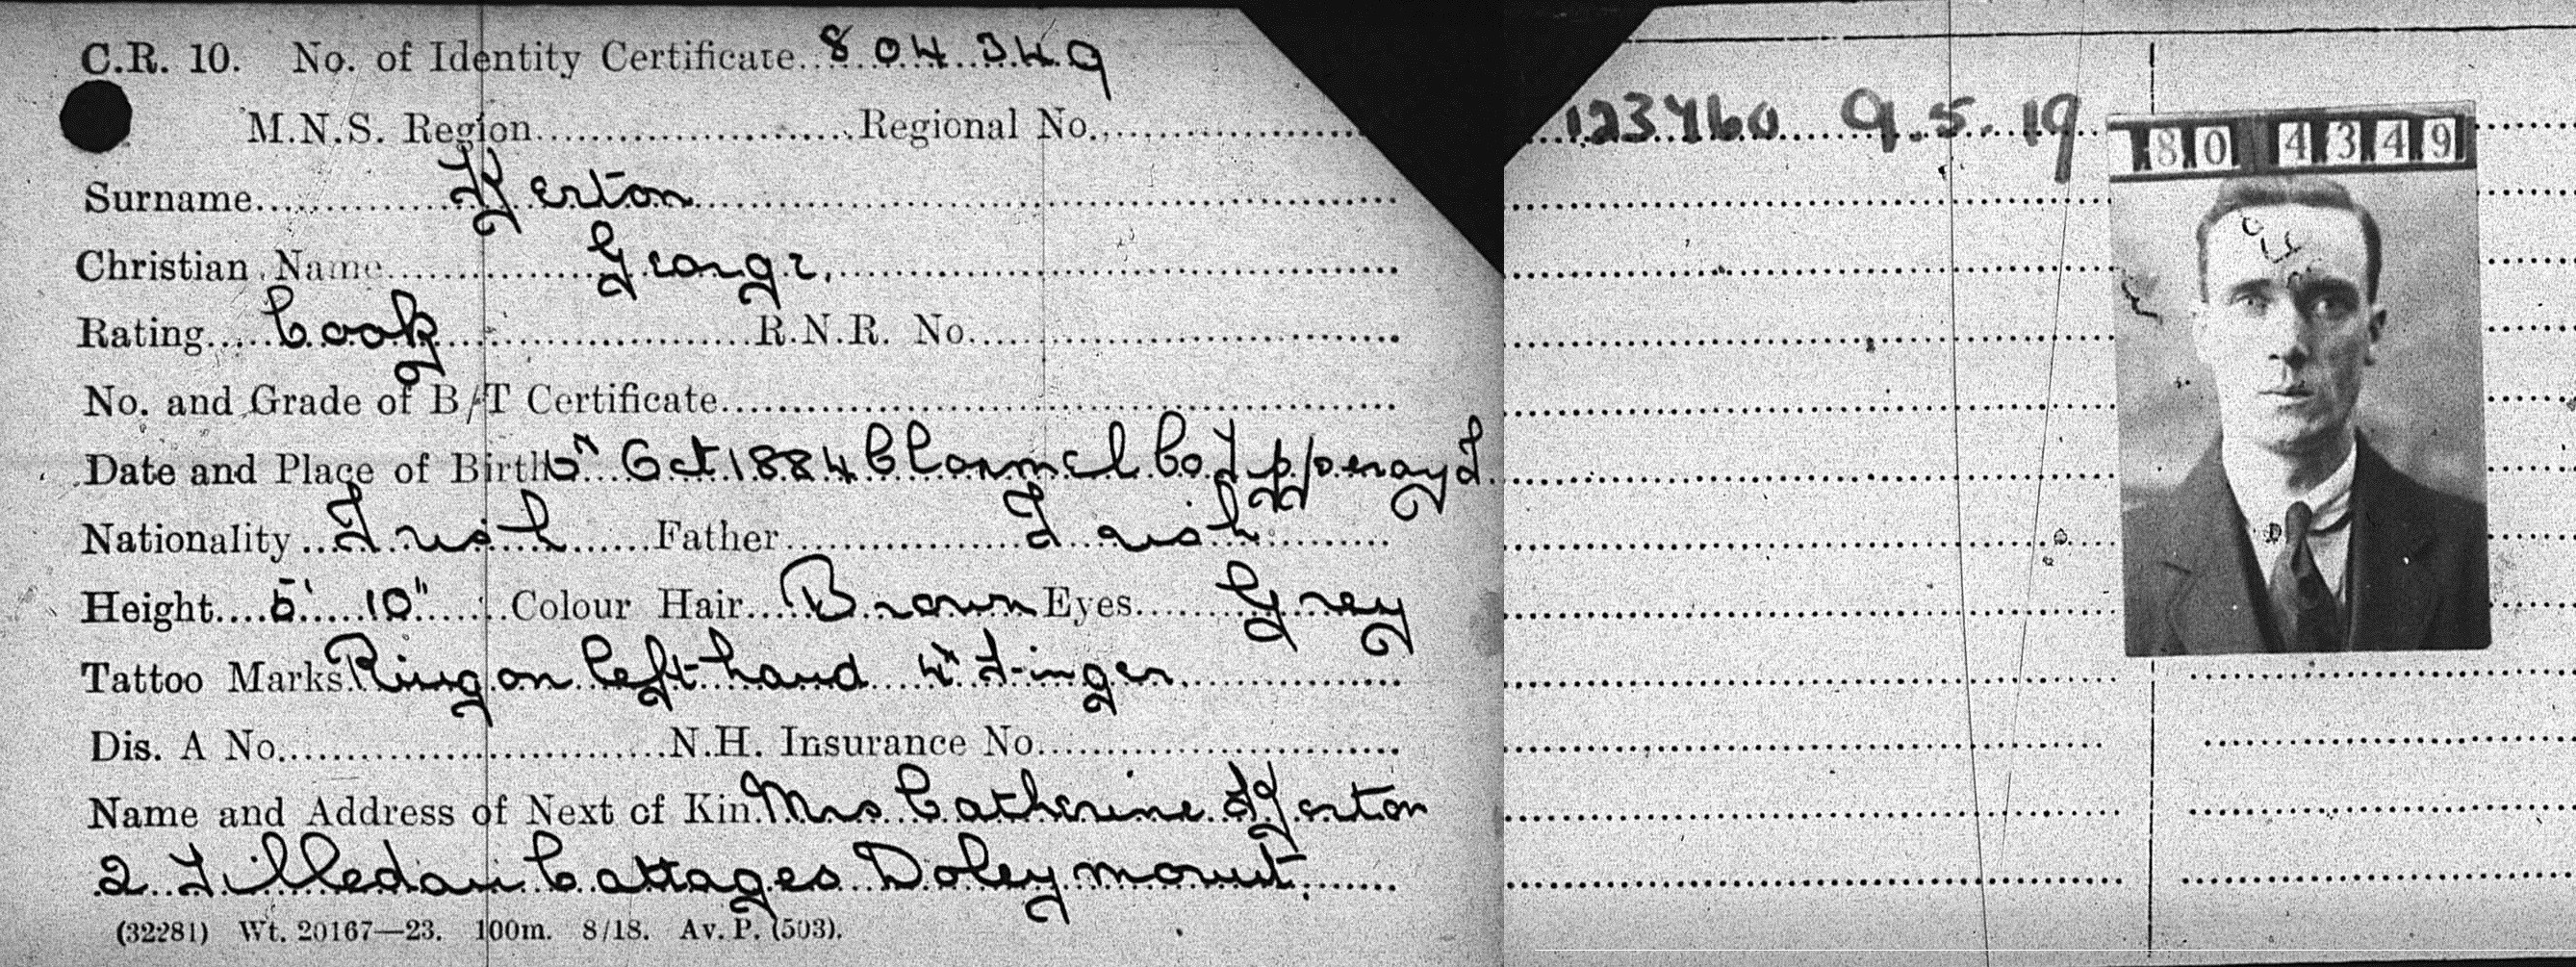 C.R. 10. No. of Identity Certificate 804349
M.N.S. Region Regional No.
Surname Kerton
Christian Name George,
Rating Cook R.N.R. No.
No. and Grade of B/T Certificate
Date and Place of Birth 6th Oct 1884 Clonmel Co
Nationality Irish Father Irish
Height 5' 10" Colour Hair Brown Eyes Grey
Tattoo Marks Ring on left hand 4th Finger
Dis. A No. N.H. Insurance No.
Name and Address of Next of Kin Mrs Catherine Kerton
2 Cottages Doleymount.
(32281) Wt. 20167—23. 100m. 8/18. Av. P. (503).
9.5.19
80 4349